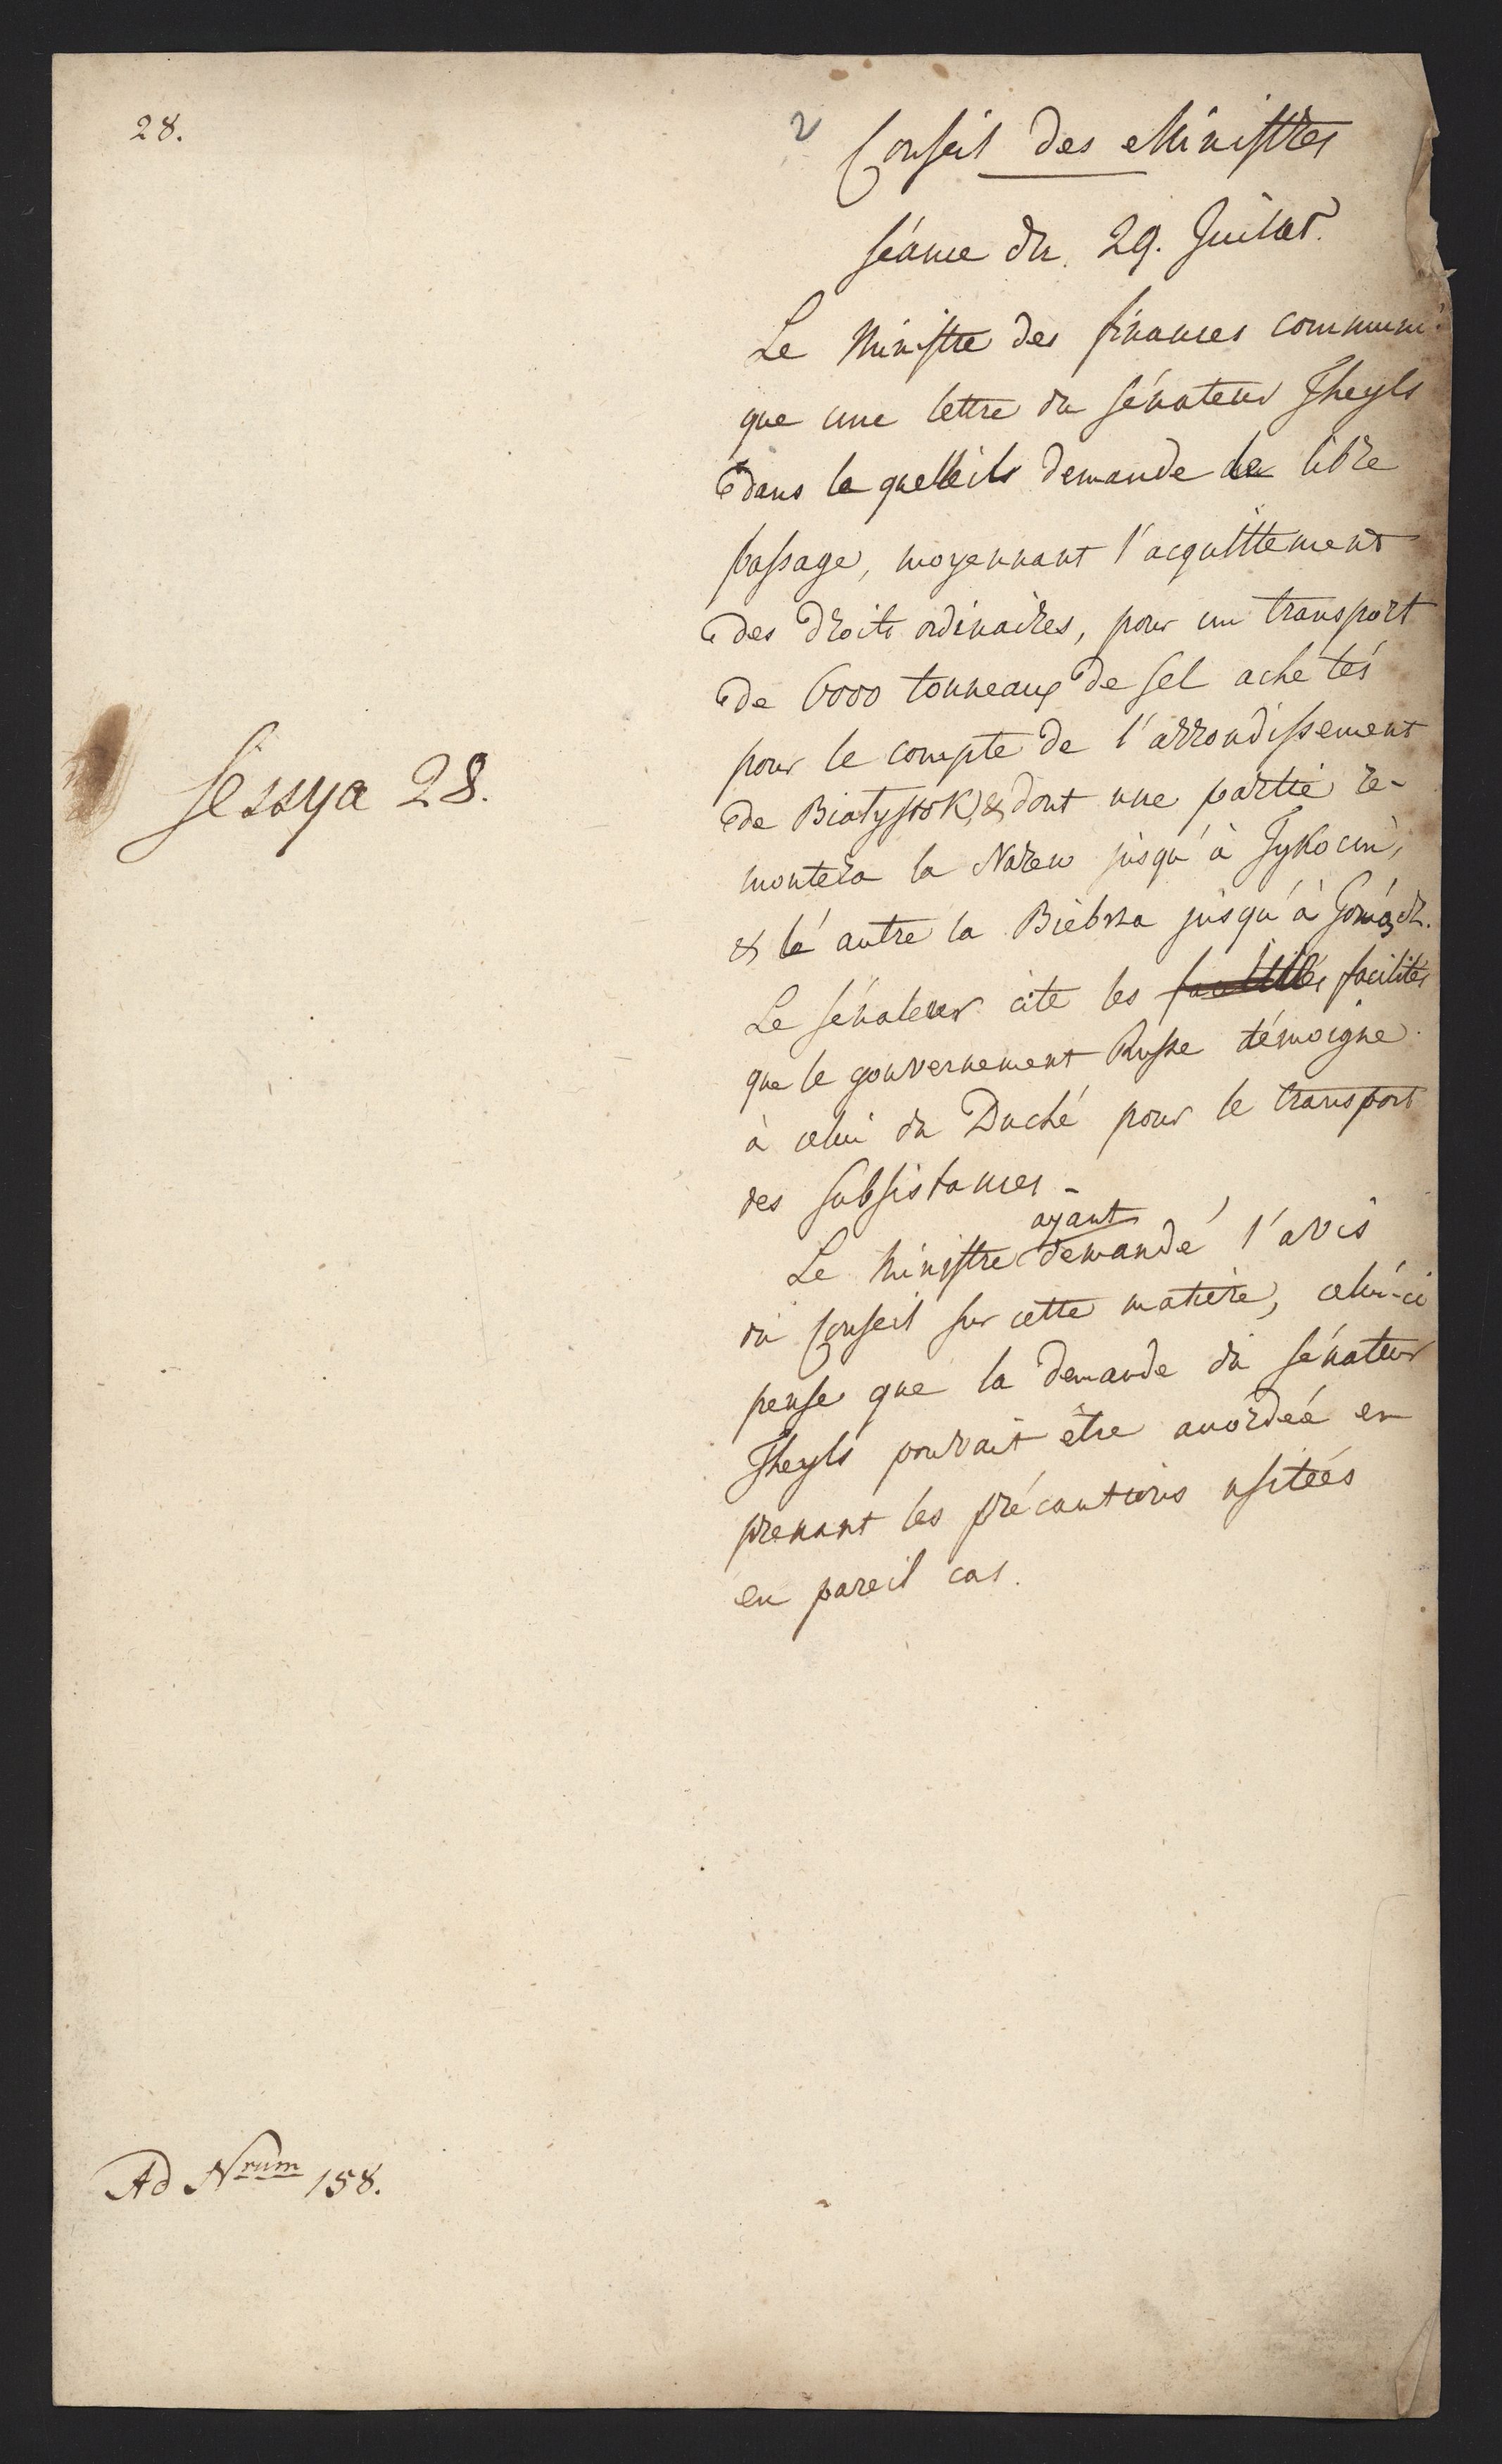 28.
2
Conseil des Ministres
séance du 29. Juillet.
Le Ministre des finances communi-
que une lettre du sénateur Theyls
dans la quelle il demande le libre
passage, moyennant l'acquittement
des droits ordinaires, pour un transport
de 6000 tonneaux de sel achetés
pour le compte de l'arrondissement
de Białystok, & dont une partie re-
montera la Narew jusqu'à Tykocin,
& l'autre la Biebrza jusqu'à Goniądz.
Le sénateur cite les facilités facilités
que le gouvernement Russe témoigne
à celui du Duché pour le transport
des subsistances -
Le Ministre ayant demandé l'avis
du Conseil sur cette matière, celui-ci
pense que la demande du sénateur
Theyls pouvait être accordée en
prenant les précautions usitées
en pareil cas.
Sessya 28.
Ad Nrum 158.